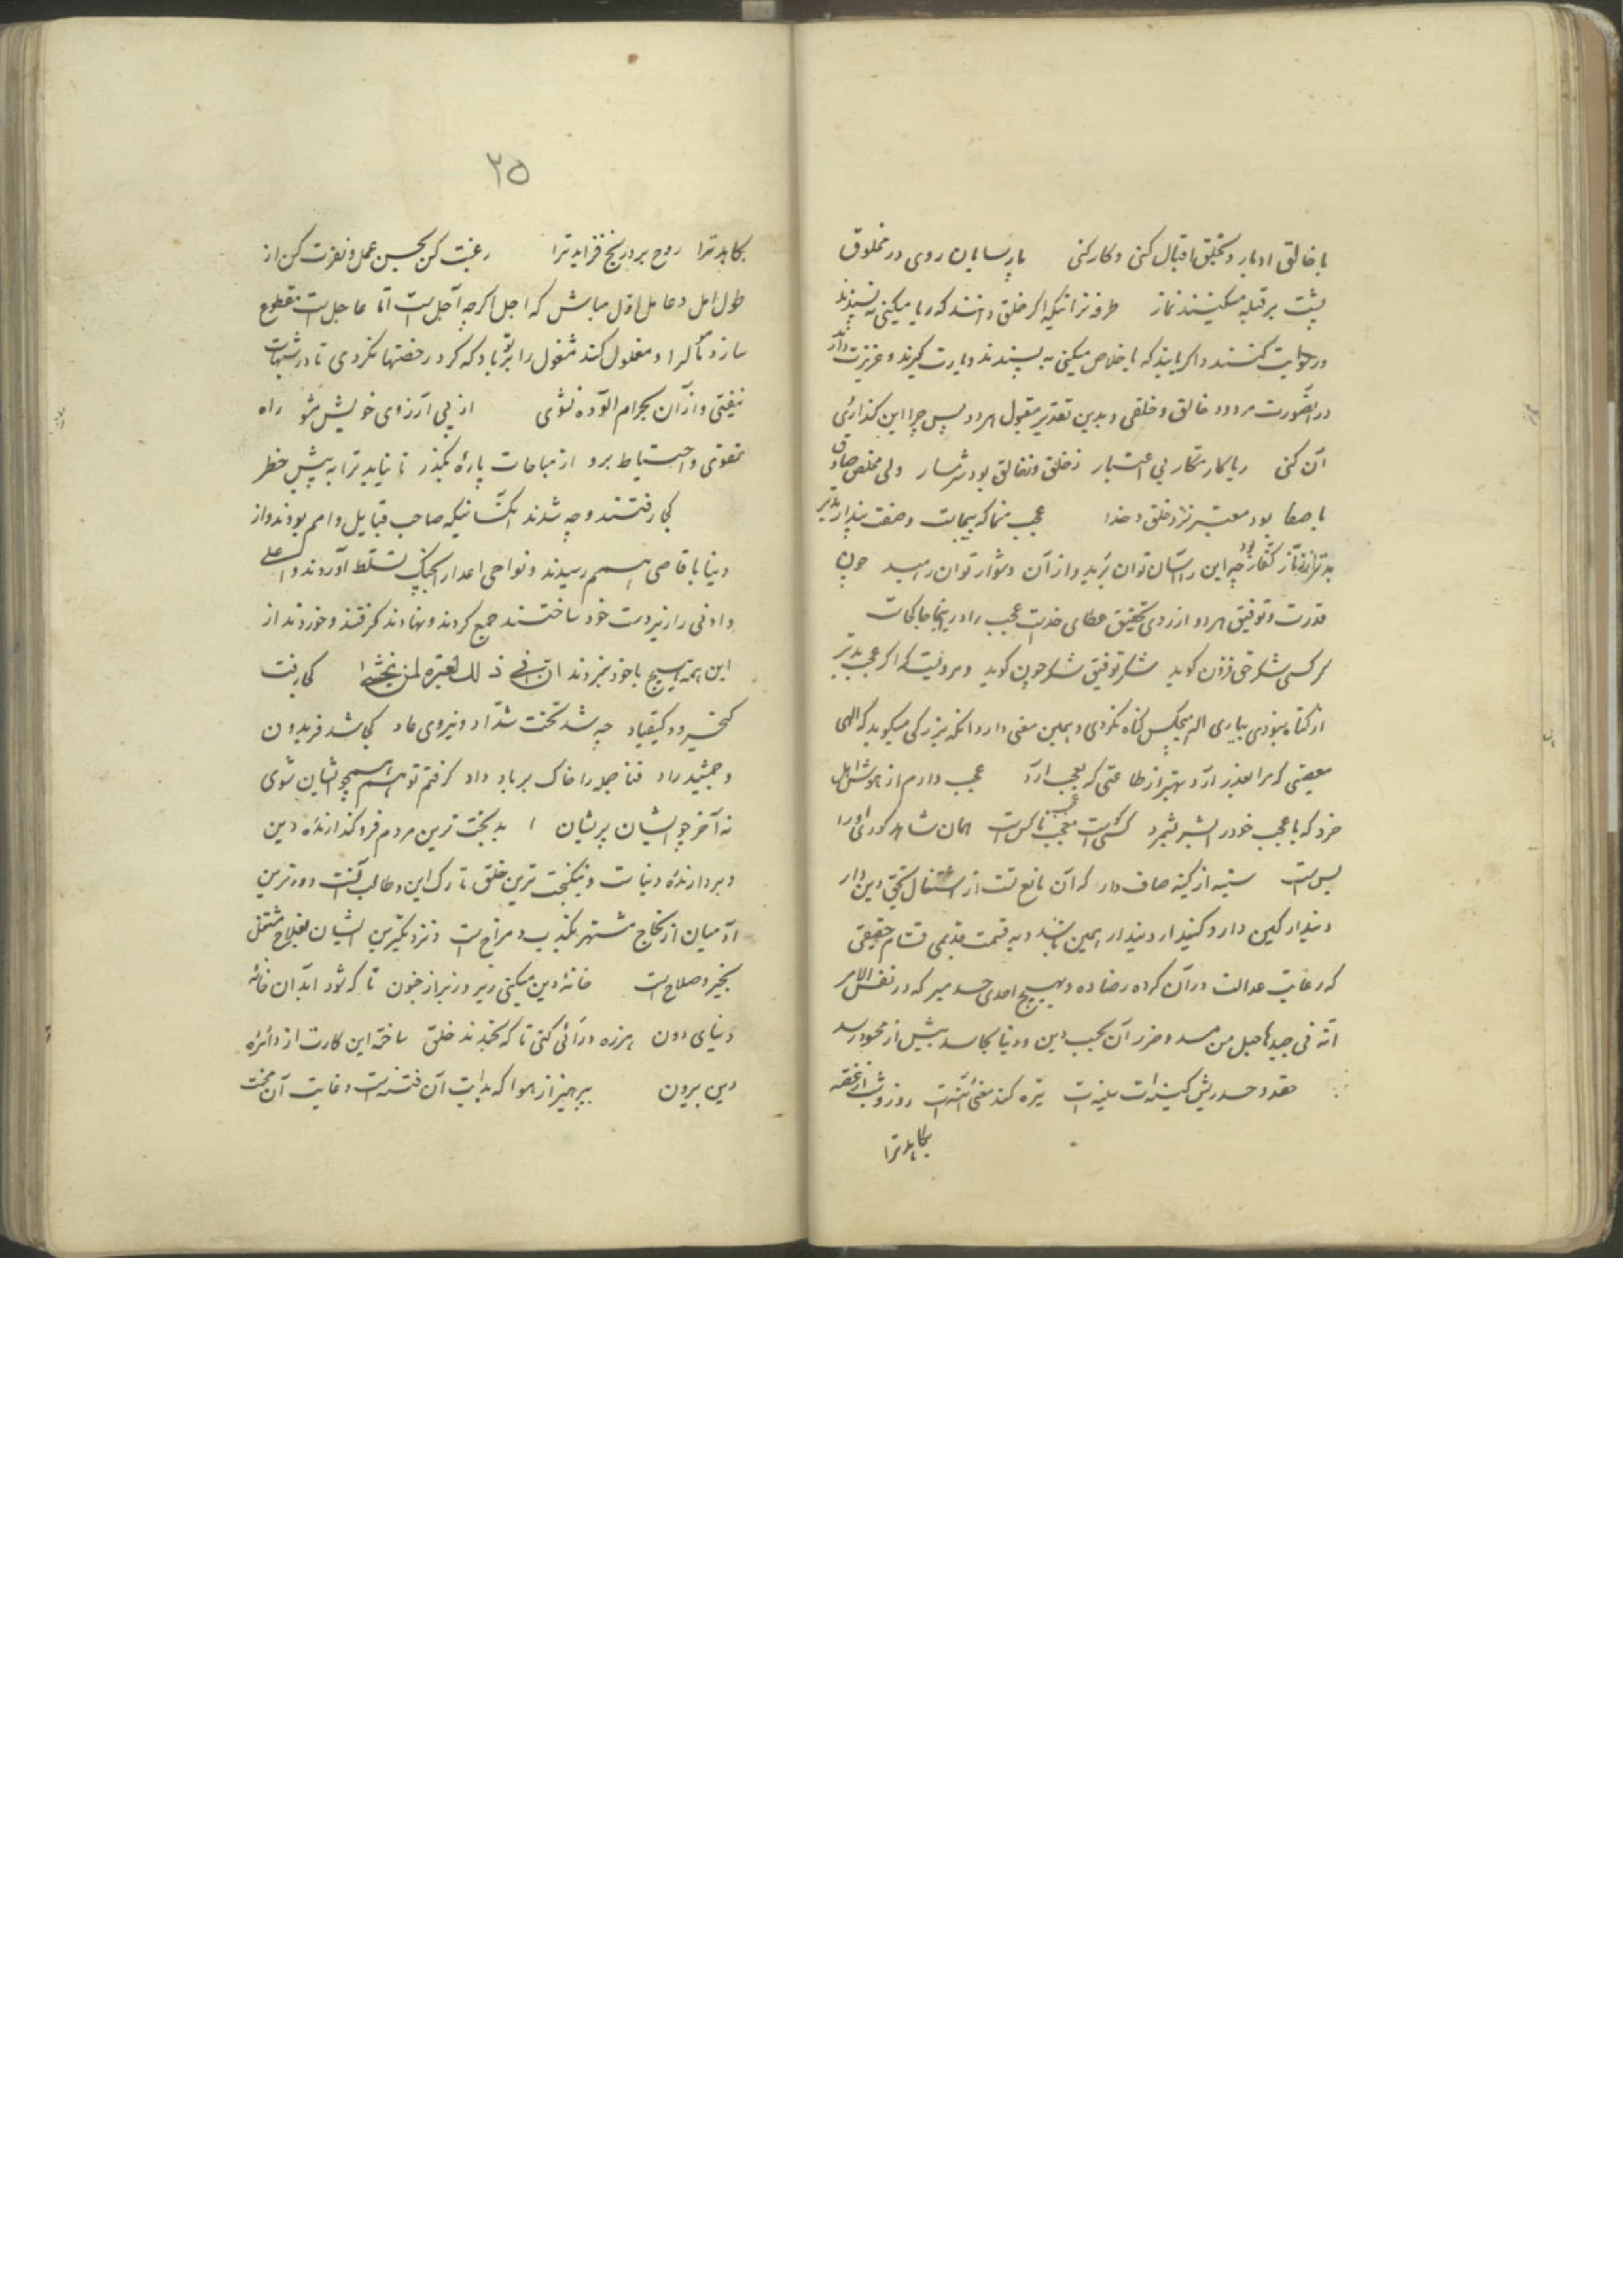 با خالق ادبار و بخلق اقبال کنی و کار کنی پارسایان روی در مخلوق
پشت بر قبله میکنند نماز طرفه تر آنکه اگر خلق دانند که ریا میکنی نه پسندند
کنند و اگر یابند که باخلاص میکنی به پسندند و یارت گیرند و عزیزت دارند
در آنصورت مردود خالق و خلقی و بدین تقدیر مقبول هر دو پس چرا این گذاری
آن کنی ریاکار مکار بی اعتبار ز خلق و ز خالق بود شرمسار ولی مخلص صادق
با صفا بود معتبر نزد خلق و خدا عجب منما که بیجاست وصفت پندار مپذیر
بدتر از کفار چه این را آسان توان برید و از آن دشوار توان رمید چون
قدرت و توفیق هر دو از روی تحقیق عطای خداست عجب را در اینجا جا کجاست
هر کسی شکر حق فزون گوید شکر توفیق شکر چون گوید و مرویست که اگر عجب بدتر
از گناه نبودی بیاری اله هیچکس گناه نکردی و بهمین معنی دارد آنکه بزرگی میگوید که الهی
معصیتی که مرا بعذر آرد بهتر از طاعتی که بعجب آرد عجب دارم از هوش اهل
خرد که با عجب خود را بشر شمرد کسی است معجب ناکس است همان شاهد کوری او را
بس است سینه از کینه صاف دار که آن مانع تست از اشتغال بحق دین دار
دیندار کین دارد کیندار دیندار همین باشد و به قسمت قدیمی قسام حقیقی
که رعایت عدالت در آن کرده رضا ده و بهیچ احدی حسد مبر که در نفس الامر
انه فی جیدها حبل من مسد و ضرر آن بحسب دین و دنیا بحاسد بیش از محسود رسد
حقد و حسد ریش کن سینه است تیره کند معنی آئینه است روز و شب از غصه
بکاهد ترا
۲۵
بکاهد ترا روح برد رنج فزاید ترا رغبت کن بحسن عمل و نفرت کن از
طول امل و عامل اول مباش که اجل اگر چه آجل است اما عاجل است منقطع
سازد و مغلول کند مشغول را که گرد رخصتها نگردی تا در شبهات
نیفتی و از آن بحرام آلوده نشوی از پی آرزوی خویش مشو راه
تقوی و احتیاط برو از مباحات پاره بگذر تا نیاید ترا به پیش خطر
کجا رفتند و چه شدند آنکسانیکه صاحب قبایل و امم بودند و از
دنیا باقاصی رسیدند و نواحی اعدا را بجنگ تسلط آوردند و اعلی
و ادنی را زیردست خود ساختند جمع کردند و نهادند گرفتند و خوردند از
این همه هیچ با خود نبردند ان فی ذلک لعبرة لمن یخشی کجا رفت
کیخسرو و کیقباد چه شد تخت شداد و نیروی عاد کجا شد فریدون
و جمشید راد فنا جمله را خاک بر باد داد گرفتم تو هم همچو ایشان شوی
نه آخر چو ایشان پریشان بدبخت ترین مردم فروگذارنده دین
و بردارنده دنیاست و نیکبخت ترین خلق تارک این و طالب آنست دورترین
آدمیان از نجاح مشتهر بکذب و مزاح است و نزدیکترین ایشان بفلاح مشتمل
بخیر و صلاح است خانه دین میکنی زیر و زبر از جنون تا که شود آبدان خانه
دنیای دون هرزه درائی کنی تا که بخندند خلق ساخته این کارت از دائره
دین بیرون بپرهیز از هوا که بدایت آن فتنه است و غایت آن محنت